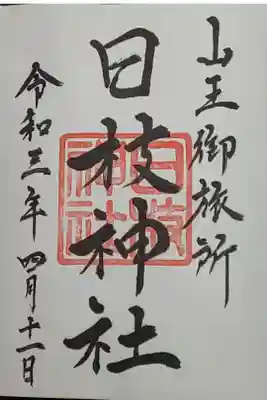 山王御旅所
日枝神社
日枝神社
令和三年 四月十一日